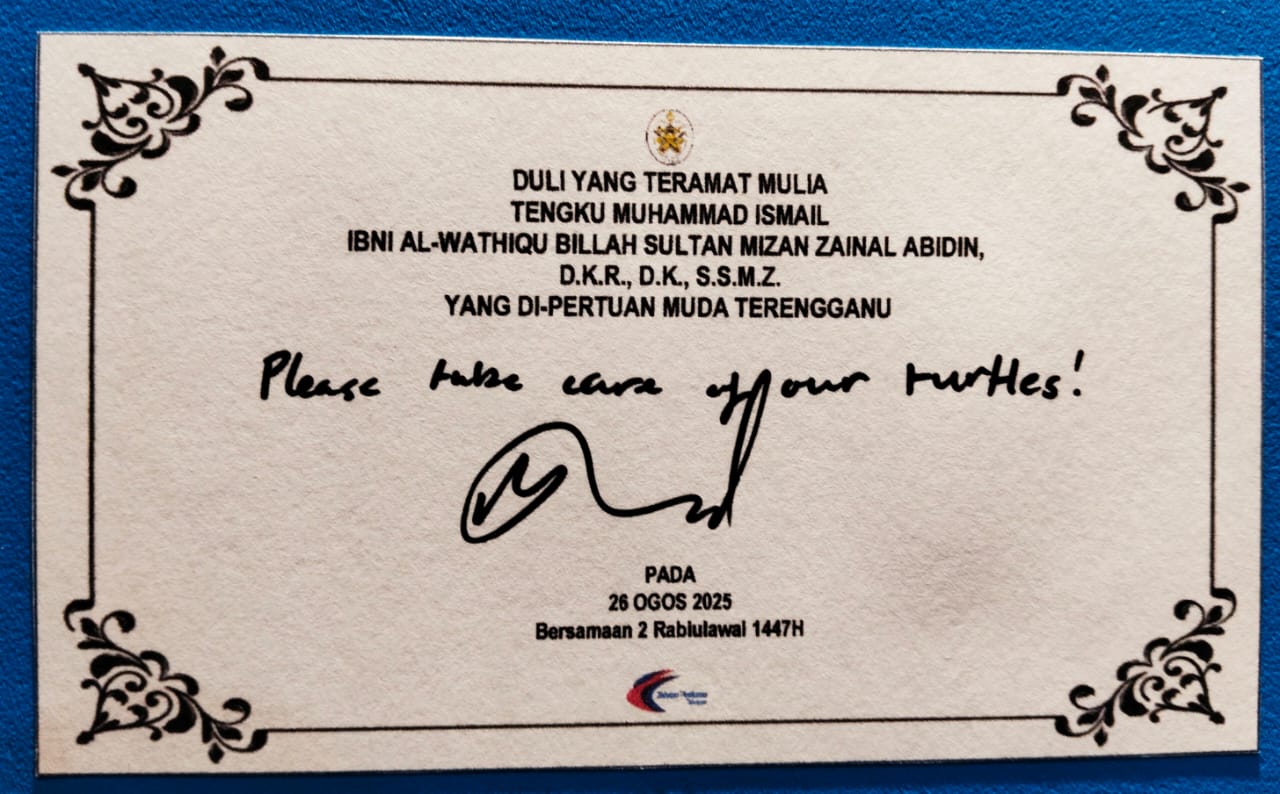 DULI YANG TERAMAT MULIA
TENGKU MUHAMMAD ISMAIL
IBNI AL-WATHIQU BILLAH SULTAN MIZAN ZAINAL ABIDIN,
D.K.R., D.K., S.S.M.Z.
YANG DI-PERTUAN MUDA TERENGGANU
Please take care of our turtles!
PADA
26 OGOS 2025
Bersamaan 2 Rabiulawal 1447H